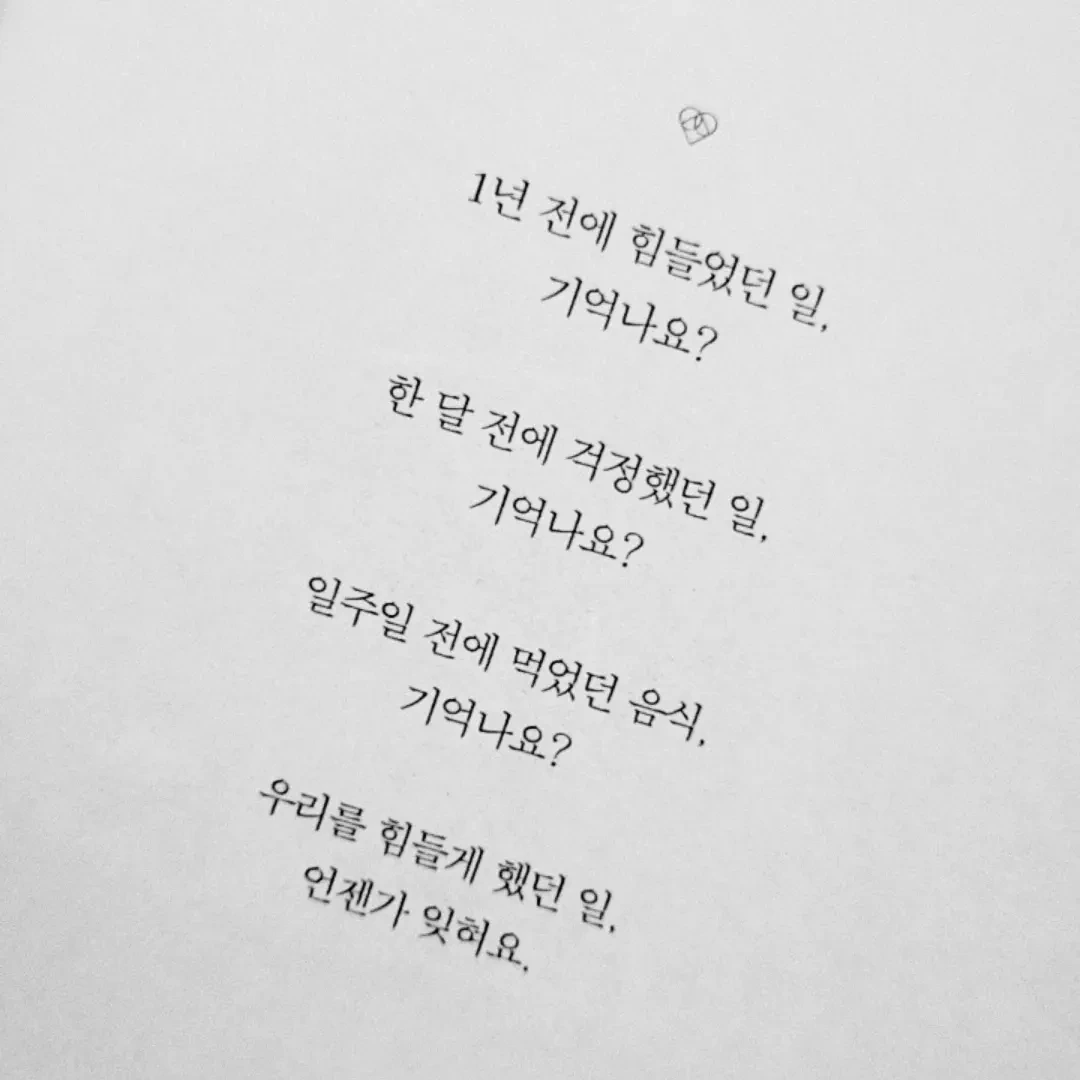 1년 전에 힘들었던 일,
기억나요?
한 달 전에 걱정했던 일,
기억나요?
일주일 전에 먹었던 음식,
기억나요?
우리를 힘들게 했던 일,
언젠가 잊혀요.